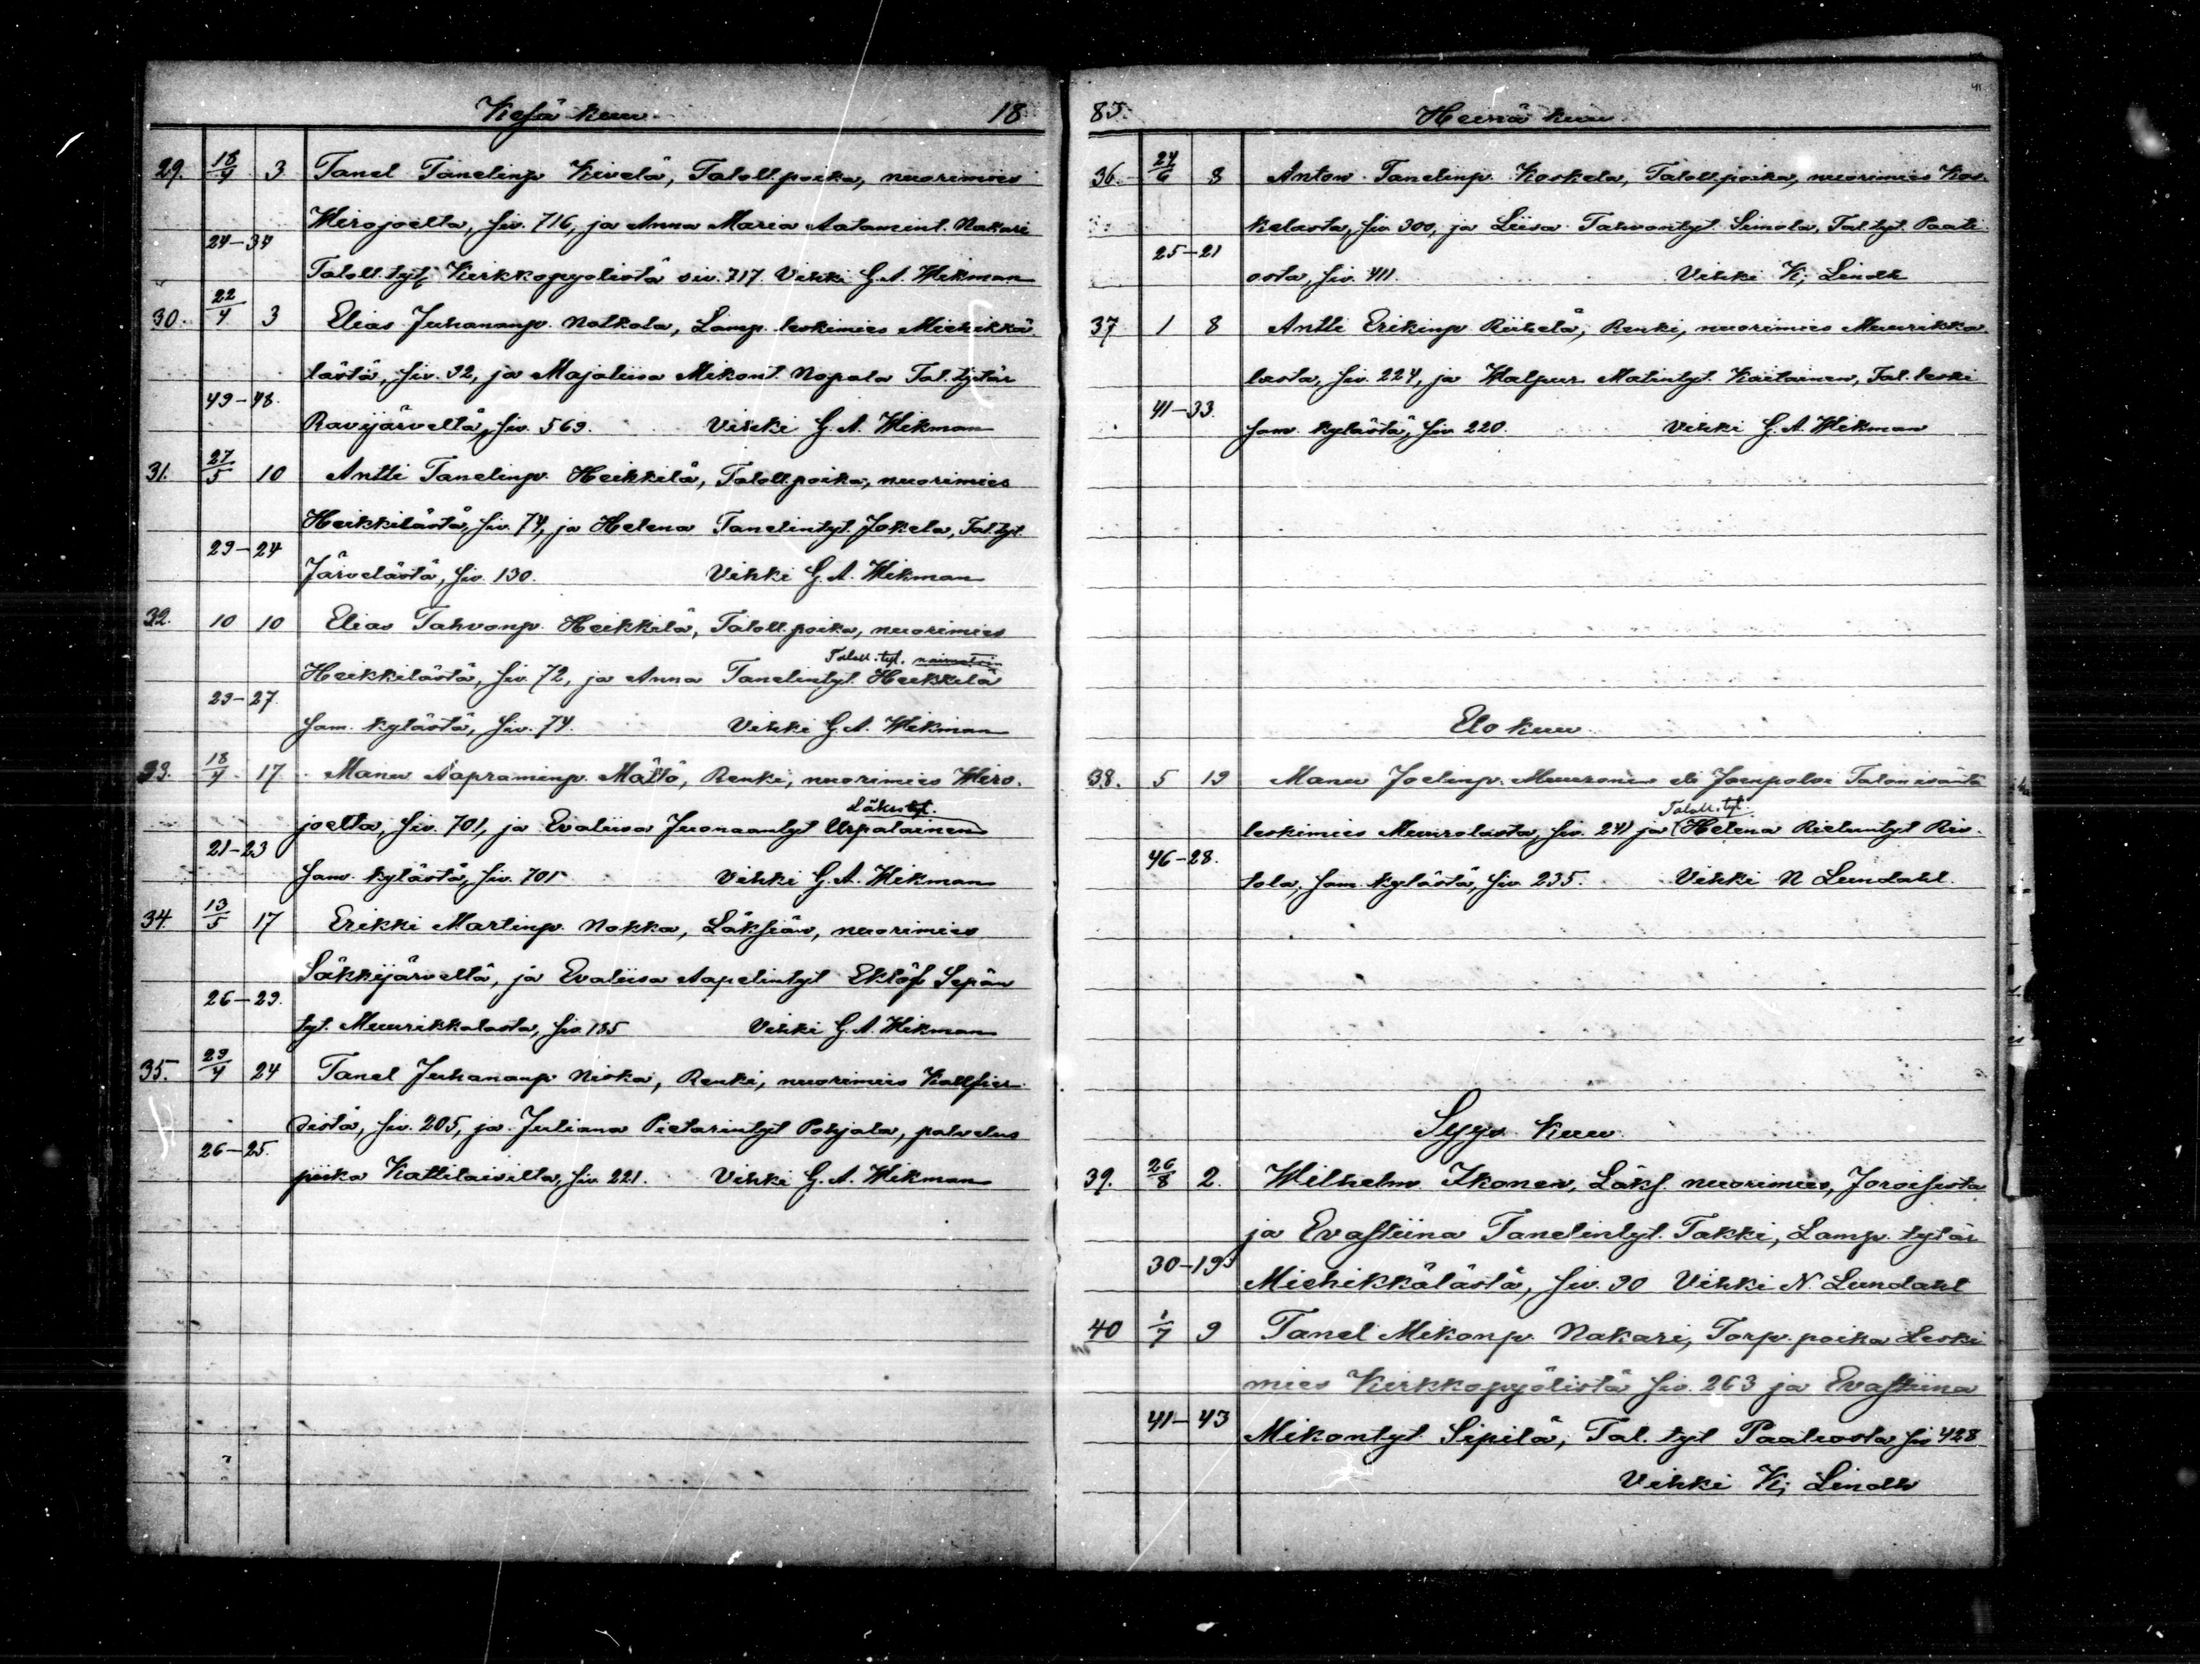 Kesä kuu 18
29. 18/4 3 Tanel Tanelinp. Kivelä, Taloll.poika, nuorimies
Wirojoelta, siv. 716, ja Anna Maria Aatamint. Nakari
24–34
Taloll.tyt. Kirkkopyölistä siv. 717. Vihki G. A. Wikman
30. 22/4 3 Elias Juhananp. Notkola, Lamp. leskimies Miehikkä-
lästä, siv. 32, ja Majaliisa Mikont. Nopala Tal. tytär
49–48.
Ravijärveltä, siv. 569. Vihki G. A. Wikman
31. 27/5 10 Antti Tanelinp. Heikkilä, Taloll.poika, nuorimies
Heikkilästä, siv. 74, ja Helena Tanelintyt. Jokela, Tal.tyt.
29–24
Järvelästä, siv. 130. Vihki G. A. Wikman
32. 10 10 Elias Tahvonp. Heikkilä, Taloll.poika, nuorimies
Taloll.tyt.
Heikkilästä, siv. 72, ja Anna Tanelintyt. Heikkilä
23–27.
Sam. kylästä, siv. 74. Vihki G. A. Wikman
33. 18/4 17 Manu Aapraminp. Mättö, Renki, nuorimies Wiro-
Läks.tyt.
joelta, siv. 701, ja Evaliisa Juonaantyt Urpalainen
21–23
Sam. kylästä, siv. 701 Vihki G. A. Wikman
34. 13/5 17 Erikki Martinp. Nokka, Läksiän, nuorimies
Säkkijärveltä, ja Evaliisa Aapelintyt Eklöf Sepän
26–29.
tyt. Muurikkalasta, siv. 185 Vihki G. A. Wikman
35. 29/4 24 Tanel Juhananp. Niska, Renki, nuorimies Kallfier-
distä, siv. 205, ja Juliana Pietarintyt Pohjala, palvelus
26–25.
piika Kattilaisilta, siv. 221. Vihki G. A. Wikman
85. Heinä kuu
36. 24/6 8 Anton Tanelinp. Koskela, Taloll.poika, nuorimies Kos-
kelasta, siv. 300, ja Liisa Tahvontyt. Simola, Tal.tyt. Paati-
25–21
osta, siv. 411. Vihki K. Lindh
37 1 8 Antti Erikinp. Riihelä, Renki, nuorimies Muurikka-
lasta, siv. 224, ja Walpur Matintyt. Kaitainen, Tal. leski
41–33.
Sam. kylästä, siv. 220. Vihki G. A. Wikman
Elo kuu
38. 5 19 Manu Joelinp. Muuronen eli Joenpolvi Talon isäntä
Taloll.tyt.
leskimies Muurolasta, siv. 241 ja Helena Rieluntyt Ris-
46–28.
tola, Sam. kylästä, siv. 235. Vihki N Lundahl.
Syys kuu
39. 26/8 2. Wilhelm Ikonen, Läks. nuorimies, Joroisista
ja Evastiina Tanelintyt. Takki, Lamp. tytär
30–19
Miehikkälästä, siv. 30 Vihki N. Lundahl
40 1/7 9 Tanel Mikonp. Nakari, Torp. poika Leski
mies Kirkkopyölistä siv. 263 ja Evastiina
41–43
Mikontyt Sipilä, Tal. tyt Paatiosta siv 428
Vihki K. Lindh